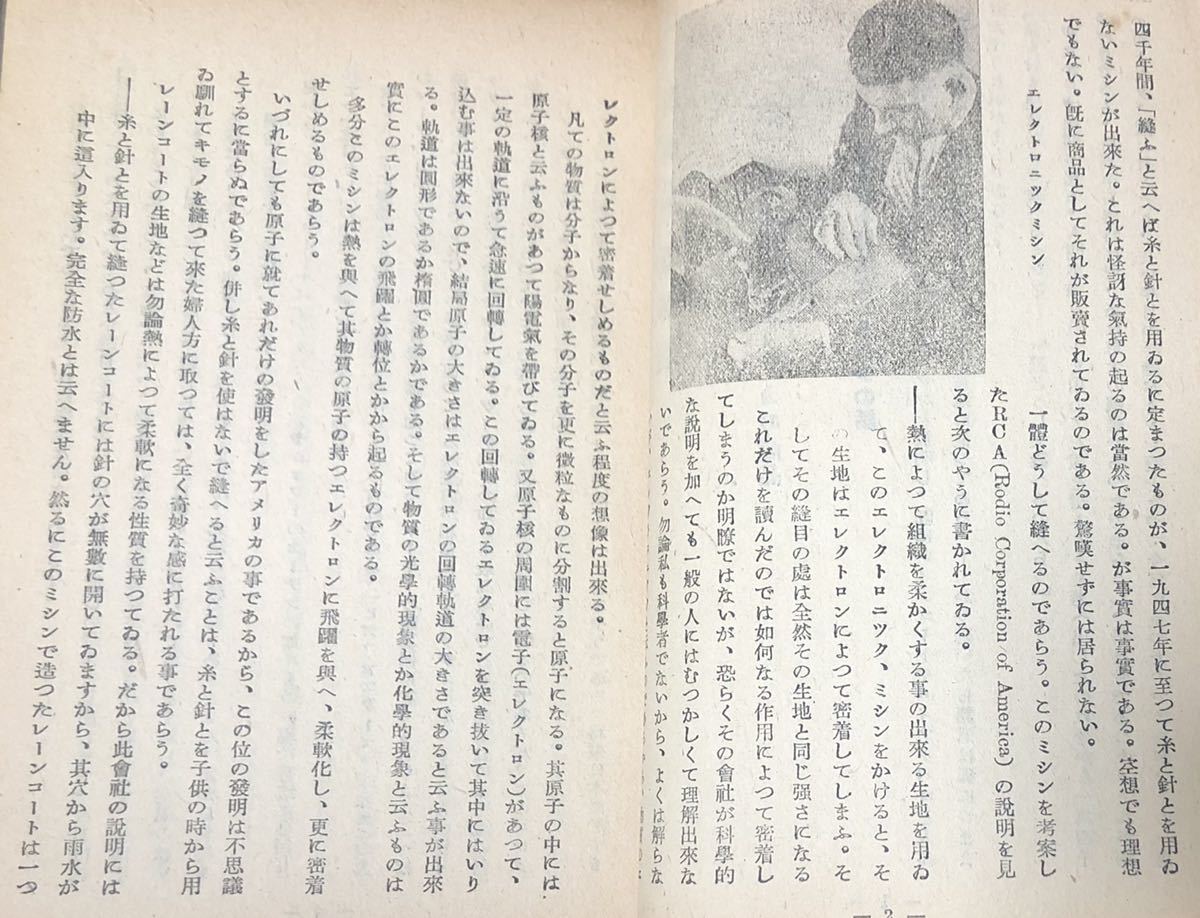 四千年間、「縫ふ」と云へば糸と針とを用ゐるに定まつたものが、一九四七年に至つて糸と針とを用ゐ
ないミシンが出來た。これは怪訝な氣持の起るのは當然である。が事實は事實である。空想でも理想
でもない。旣に商品としてそれが販賣されてゐるのである。驚嘆せずには居られない。
エレクトロニツクミシン
一體どうして縫へるのであらう。このミシンを考案し
たＲＣＡ(Rodio Corporation of America) の說明を見
ると次のやうに書かれてゐる。
――熱によつて組織を柔かくする事の出來る生地を用ゐ
て、このエレクトロニツク、ミシンをかけると、そ
の生地はエレクトロンによつて密着してしまふ。そ
してその縫目の處は全然その生地と同じ强さになる
これだけを讀んだのでは如何なる作用によつて密着し
てしまうのか明瞭ではないが、恐らくその會社が科學的
な說明を加へても一般の人にはむつかしくて理解出來な
いであらう。勿論私も科學者でないから、よくは解らな
― 2 ―
レクトロンによつて密着せしめるものだと云ふ程度の想像は出來る。
凡ての物質は分子からなり、その分子を更に微粒なものに分割すると原子になる。其原子の中には
原子核と云ふものがあつて陽電氣を帶びてゐる。又原子核の周圍には電子(エレクトロン)があつて、
一定の軌道に沿うて急速に回轉してゐる。この回轉してゐるエレクトロンを突き拔いて其中にはいり
込む事は出來ないので、結局原子の大きさはエレクトロンの回轉軌道の大きさであると云ふ事が出來
る。軌道は圓形であるか楕圓であるかである。そして物質の光學的現象とか化學的現象と云ふものは
實にこのエレクトロンの飛躍とか轉位とかから起るものである。
多分このミシンは熱を與へて其物質の原子の持つエレクトロンに飛躍を與へ、柔軟化し、更に密着
せしめるものであらう。
いづれにしても原子に就てあれだけの發明をしたアメリカの事であるから、この位の發明は不思議
とするに當らぬであらう。併し糸と針を使はないで縫へると云ふことは、糸と針とを子供の時から用
ゐ馴れてキモノを縫つて來た婦人方に取つては、全く奇妙な感に打たれる事であらう。
レーンコートの生地などは勿論熱によつて柔軟になる性質を持つてゐる。だから此會社の說明には
――糸と針とを用ゐて縫つたレーンコートには針の穴が無數に開いてゐますから、其穴から雨水が
中に這入ります。完全な防水とは云へません。然るにこのミシンで造つたレーンコートは一つ